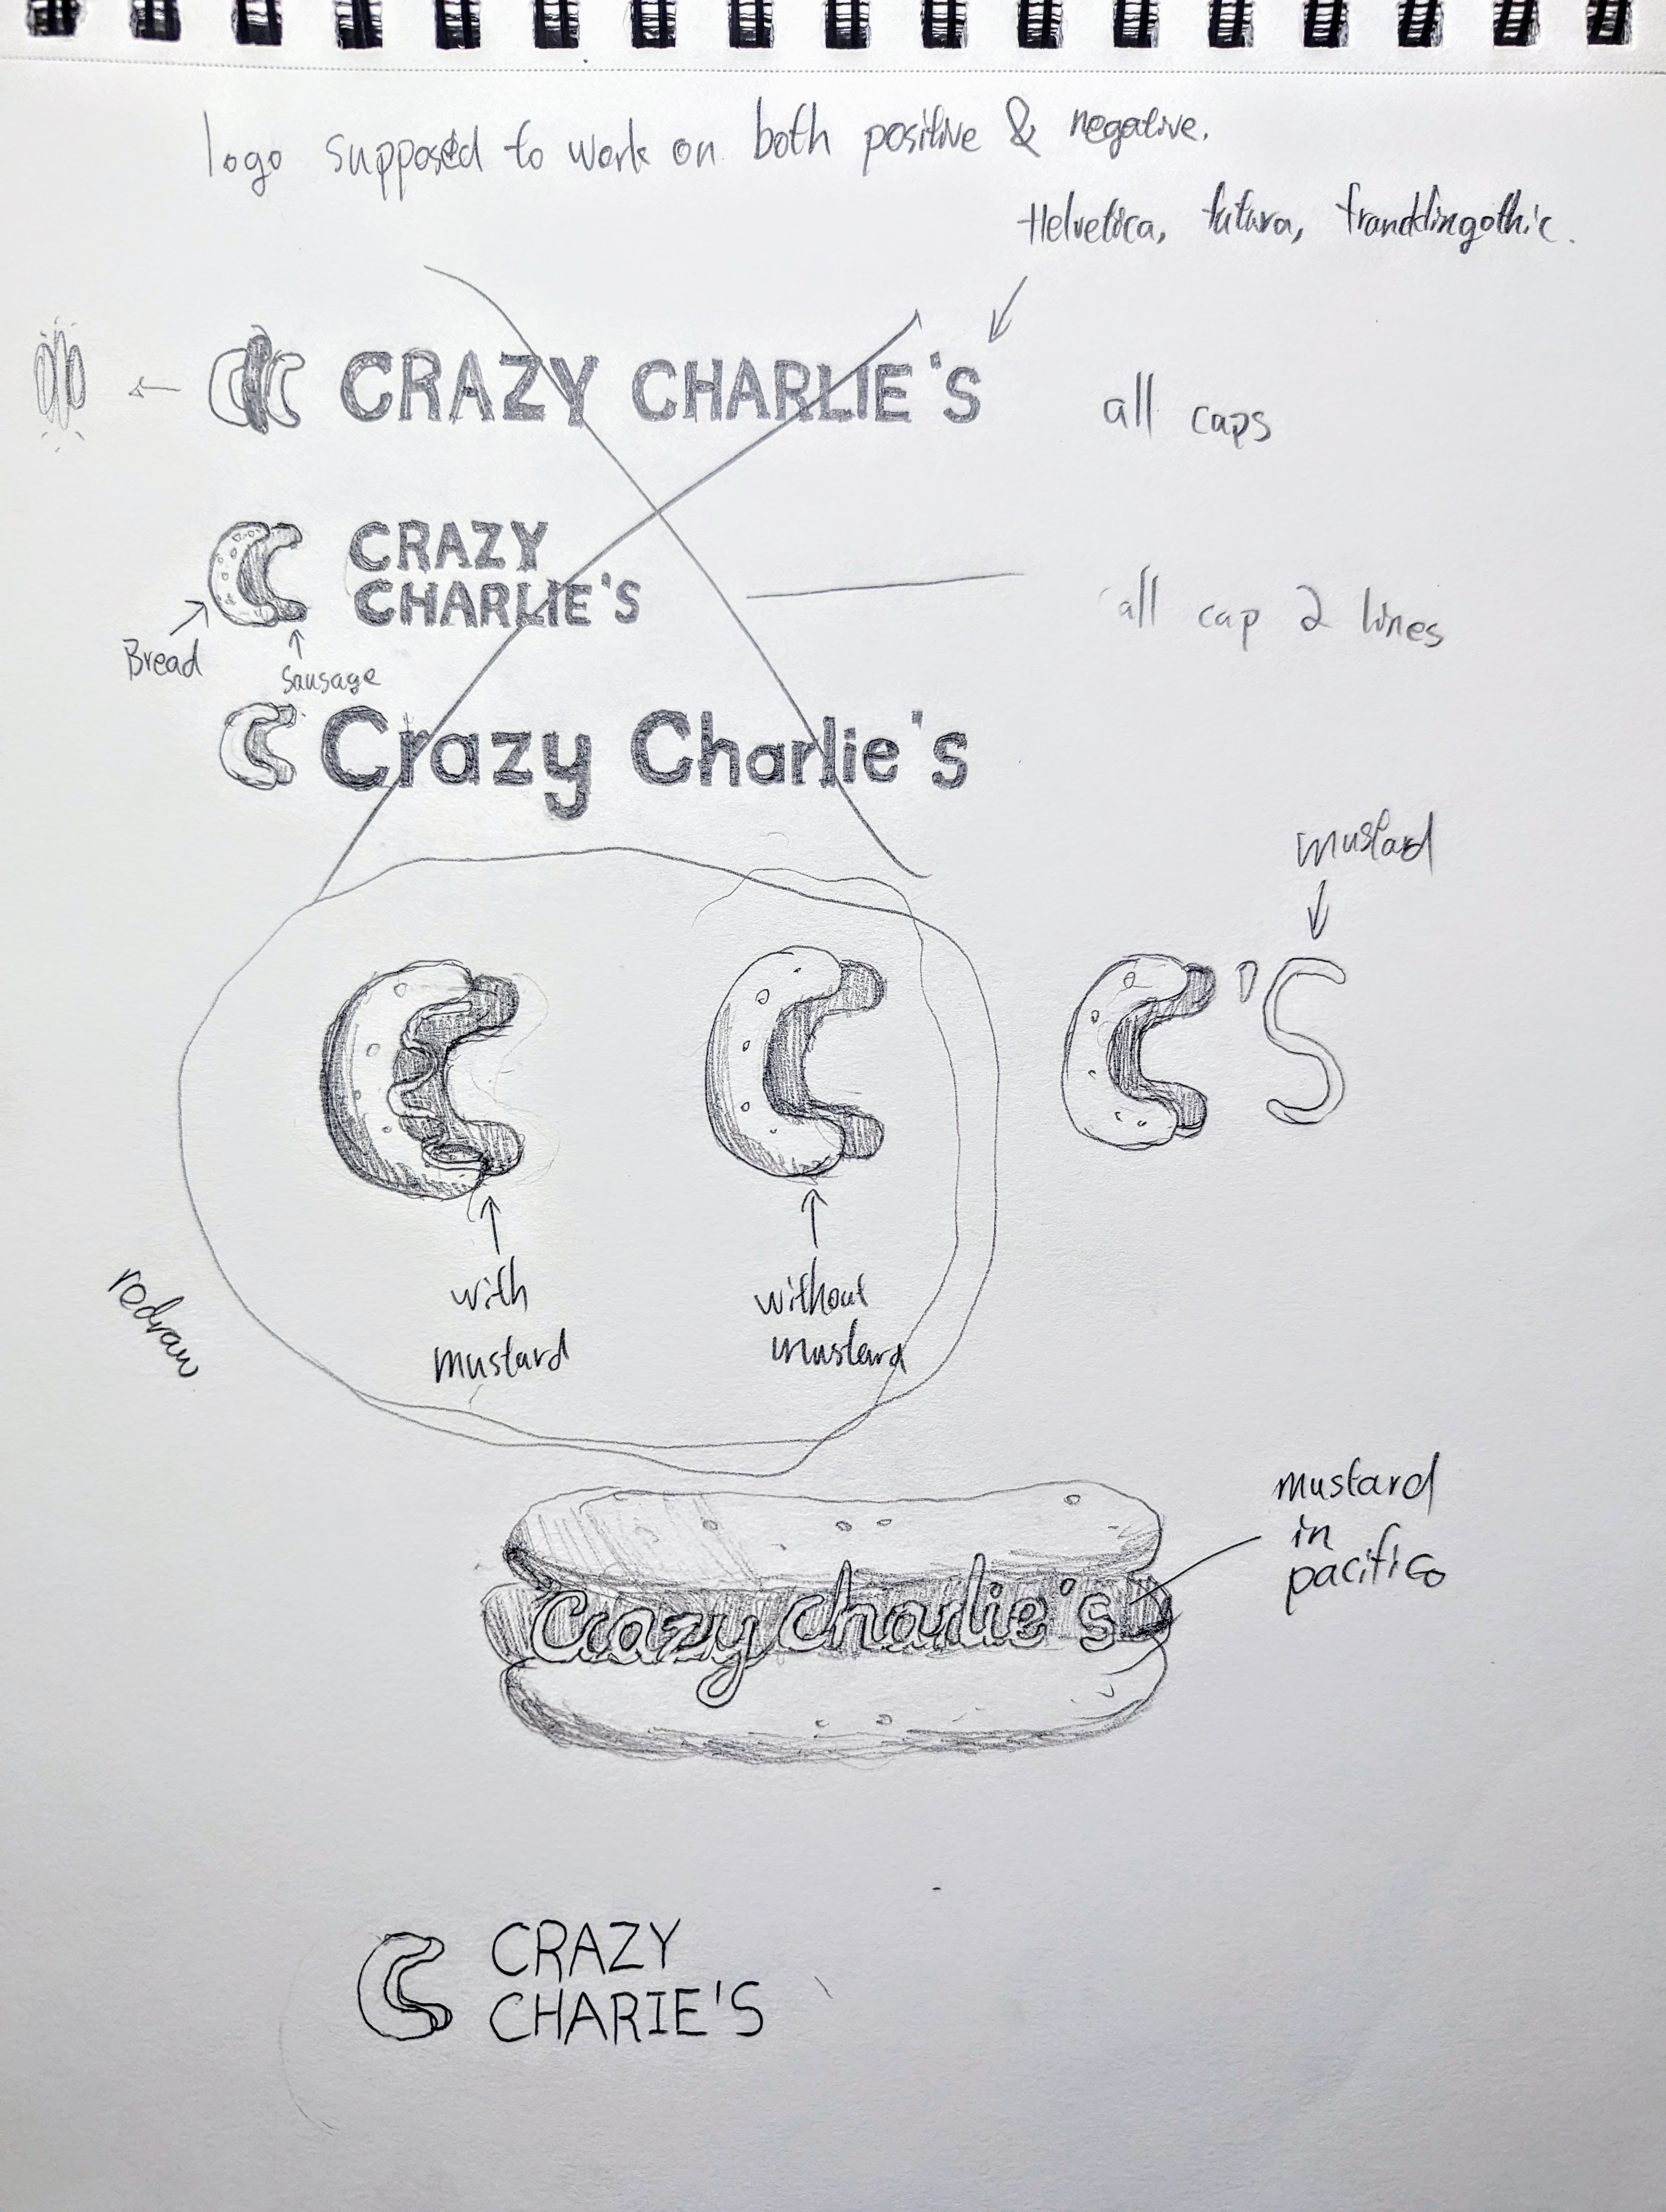 logo supposed to work on both positive & negative.
Helvetica, futura, franklingothic.
CRAZY CHARLIE'S
all caps
CRAZY
CHARLIE'S
all cap 2 lines
Bread
Sausage
Crazy Charlie's
mustard
C'S
with
mustard
without
mustard
redraw
mustard
in
pacifico
Crazy Charlie's
CRAZY
CHARIE'S